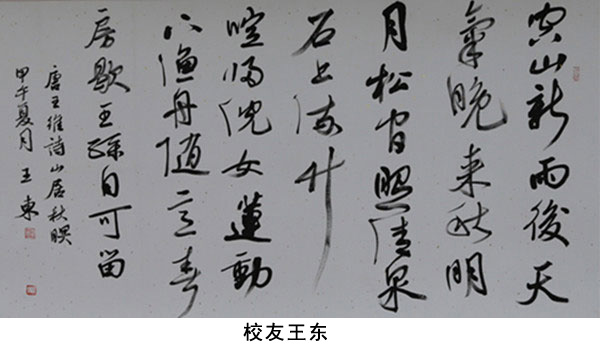 空山新雨後天
氣晚来秋明
月松间照清泉
石上流竹
喧归浣女蓮動
下渔舟随意春
房歇王孫自可留
唐王維詩山居秋暝
甲午夏月 王東
校友王东